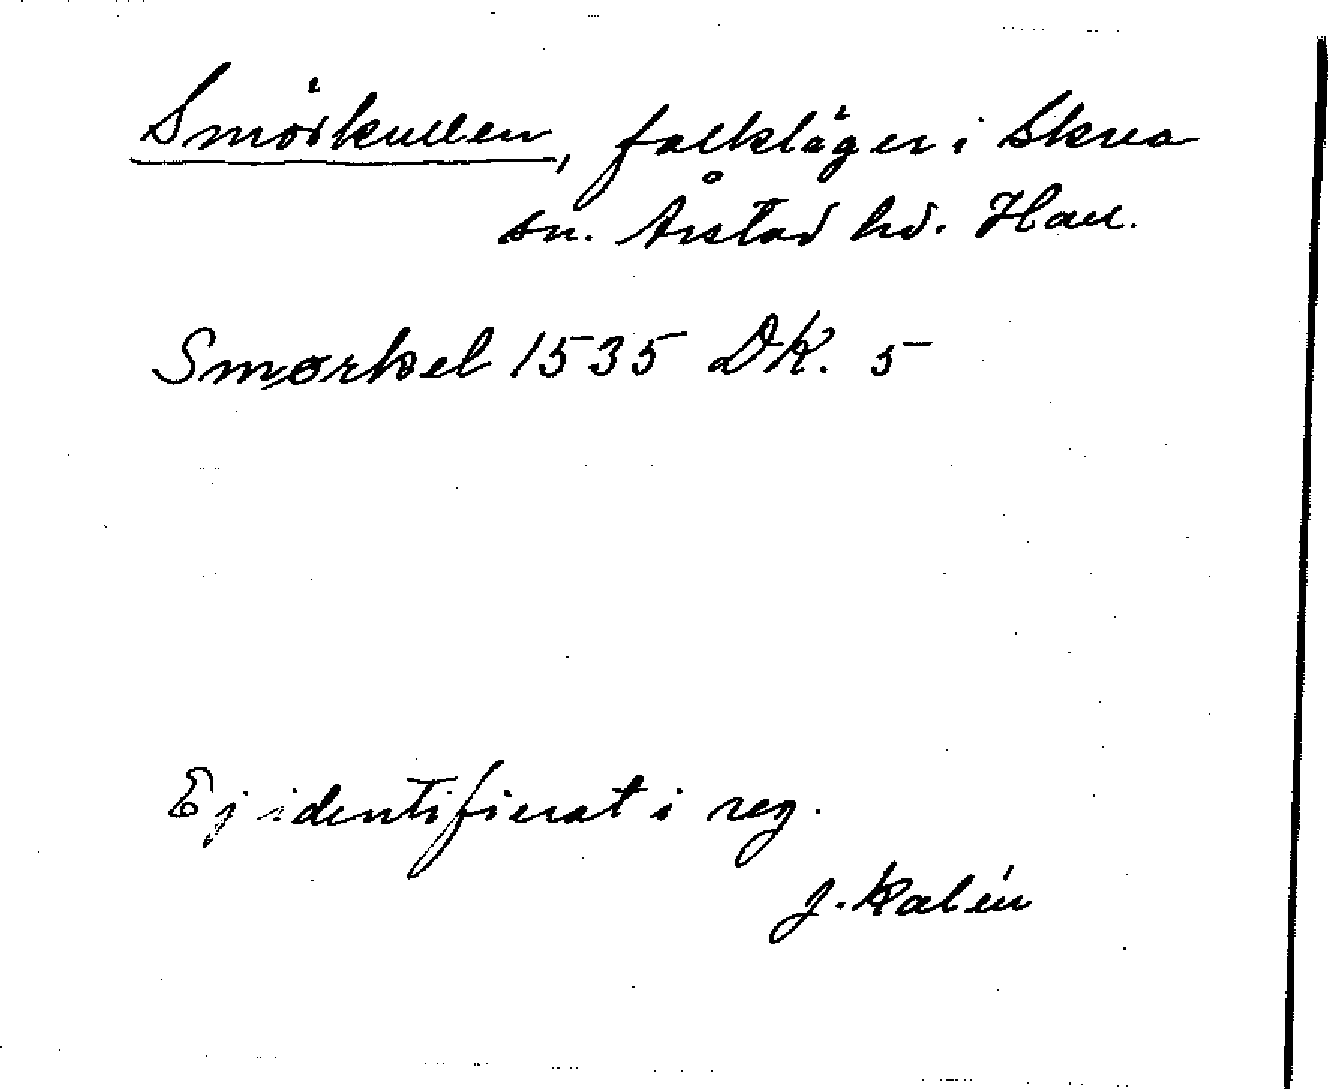 Smörkullen, falkläger i Skrea
sn. Årstad hd. Hall.
Smørkel 1535 DK. 5
Ej identifierat i reg.
J. Kalén